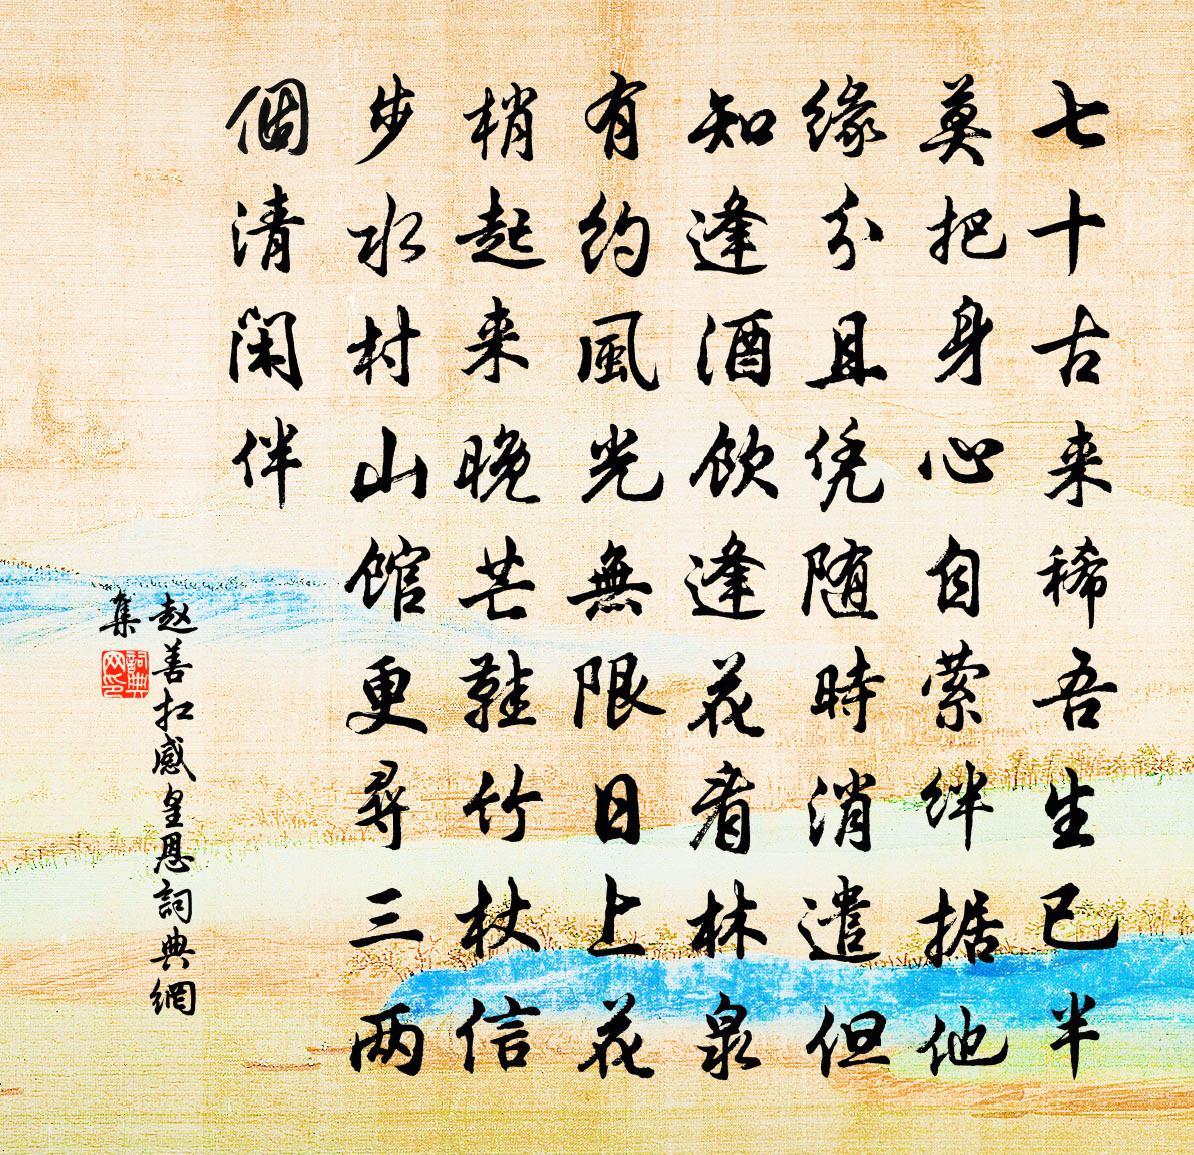 七十古来稀吾生已半
莫把身心自萦绊据他
缘分且凭随時消遣但
知逢酒飲逢花看林泉
有約風光無限日上花
梢起来晚芒鞋竹杖信
步水村山館更尋三两
個清閑伴
赵善扛感皇恩詞典網
集
詞典网印